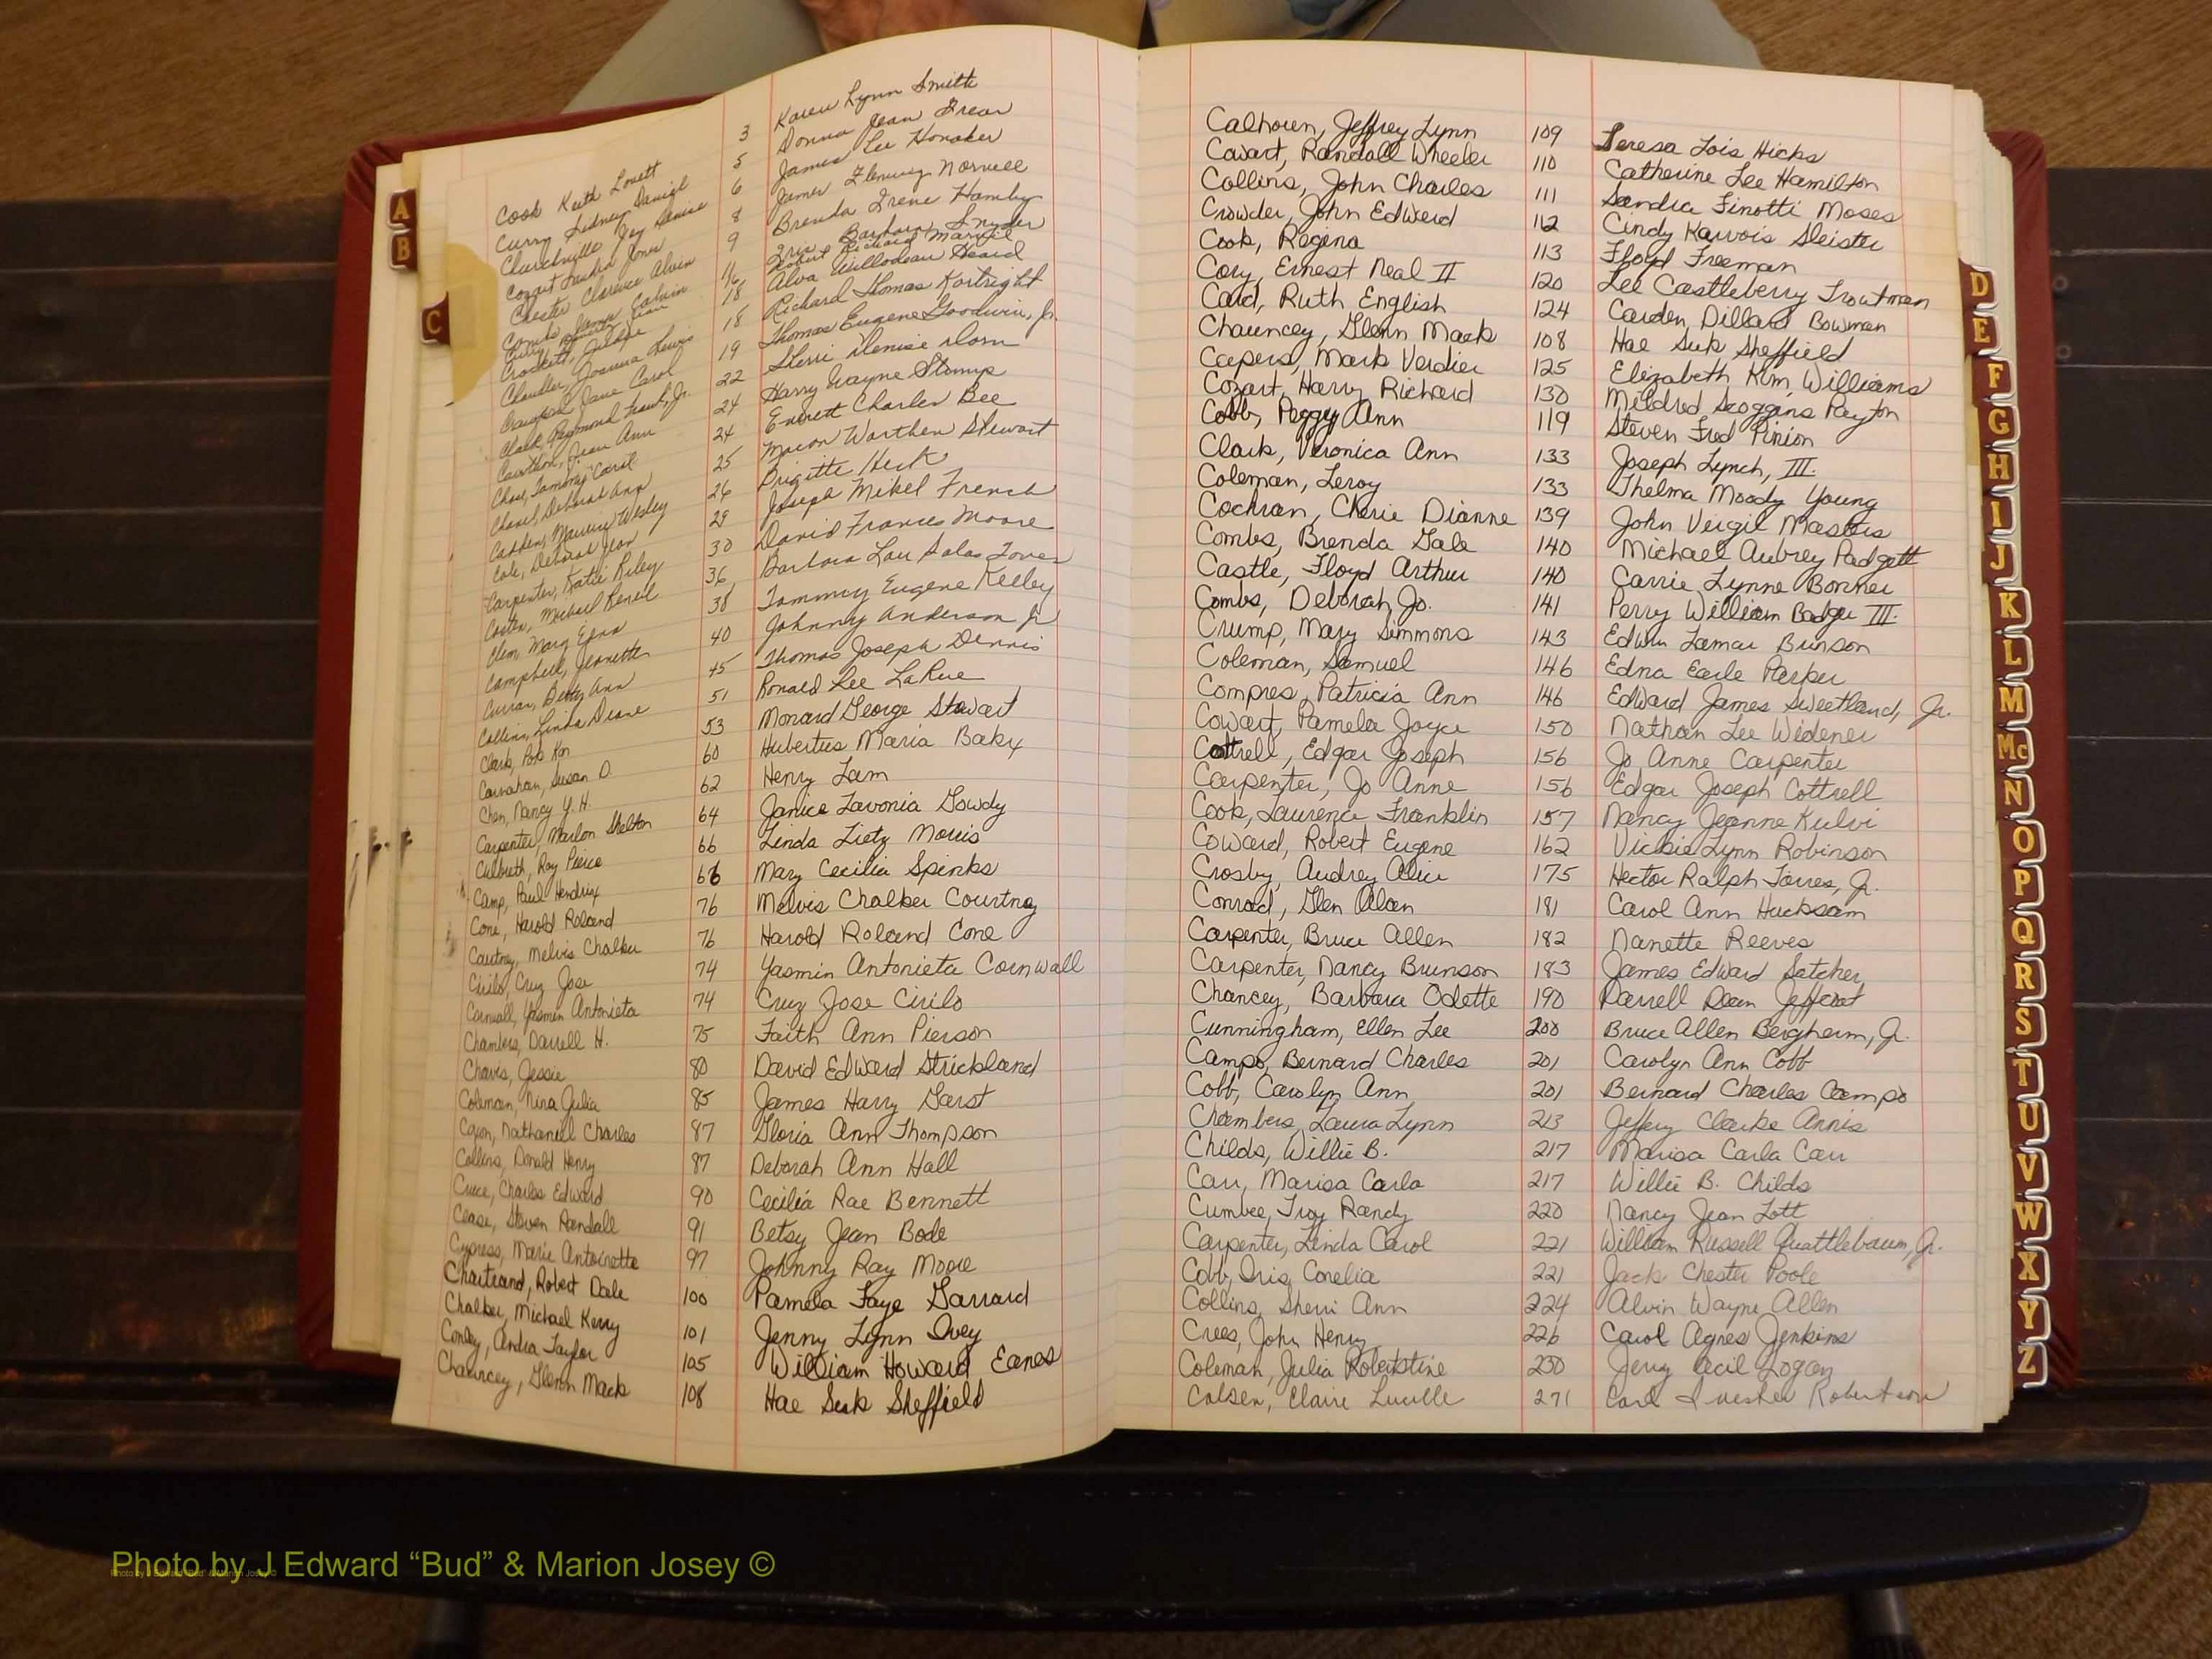 Cook Keith Lovett 3 Karen Lynn Smith
Curry Sidney Daniel 5 Donna Jean Frear
6 James Lee Honaker
8 James Fleming Norvell
Chester Clarence Alvin 9 Brenda Irene Hamby
11 Barbara Snyder
16 Robert Richard
18 Alva Heard
Crockett, 18 Richard Thomas Kortright
Chandler, Joanna Lewis 19 Thomas Eugene Goodwin, Jr.
Jane Carol 22 Sherri Denise Dorn
Clark, Raymond Frank, Jr. 24 Harry Wayne Stump
Cawthon, Jean Ann 24 Everett Charles Bee
Chase, Tammy Carol 25 Macon Warthen Stewart
Deborah Ann 26 Brigitte Heck
Maurice Wesley 29 Joseph Mikel French
Cole, Deborah Jean 30 David Frances Moore
Carpenter, Katie Riley 36 Barbara Lou
Michael Reneil 38 Tammy Eugene Kelley
Clem, Mary Edna 40 Johnny Anderson Jr
Campbell, Jeanette 45 Thomas Joseph Dennis
Curran, Betty Ann 51 Ronald Lee LaRue
Collins, Linda Diane 53 Monard George Stewart
60 Hubertus Maria Bakx
Carnahan, Susan D. 62 Henry Lam
Chen, Nancy Y. H. 64 Janice Lavonia Gowdy
Carpenter, Marlon Shelton 66 Linda Lietz Morris
Culbreth, Roy Pierce 66 Mary Cecilia Spinks
Camp, Paul Hendrix 76 Melvis Chalker Courtney
Cone, Harold Roland 76 Harold Roland Cone
Courtney, Melvis Chalker 74 Yasmin Antonieta Cornwall
Cirilo, Cruz Jose 74 Cruz Jose Cirilo
Cornwall, Yasmin Antonieta 75 Faith Ann Pierson
Chambers, Darrell H. 80 David Edward Strickland
Chavis, Jessie 85 James Harry Garst
Coleman, Nina Julia 87 Gloria Ann Thompson
Nathaniel Charles 87 Deborah Ann Hall
Collins, Donald Henry 90 Cecilia Rae Bennett
Cruce, Charles Edward 91 Betsy Jean Bode
Cease, Steven Randall 97 Johnny Ray Moore
Cypress, Marie Antoinette 100 Pamela Faye Garrard
Chartrand, Robert Dale 101 Jenny Lynn Ivey
Chalker, Michael Kerry 105 William Howard Eanes
Conley, Andra Taylor 108 Hae Suk Sheffield
Chauncey, Glenn Mack
Calhoun, Jeffrey Lynn 109 Teresa Lois Hicks
Cowart, Randall Wheeler 110 Catherine Lee Hamilton
Collins, John Charles 111 Sandra Finotti Moses
Crowder, John Edward 112 Cindy Karvois Sleister
Cook, Regina 113 Floyd Freeman
Cory, Ernest Neal II 120 Lee Castleberry Troutman
Card, Ruth English 124 Carden Dillard Bowman
Chauncey, Glenn Mack 108 Hae Suk Sheffield
Cespers, Mark Verdier 125 Elizabeth Kim Williams
Cozart, Harry Richard 130 Mildred Scoggins Peyton
Cobb, Peggy Ann 119 Steven Fred Pinion
Clark, Veronica Ann 133 Joseph Lynch, III.
Coleman, Leroy 133 Thelma Moody Young
Cochran, Cherie Dianne 139 John Virgil Masters
Combs, Brenda Gale 140 Michael Aubrey Padgett
Castle, Floyd Arthur 140 Carrie Lynne Bonner
Combs, Deborah Jo. 141 Perry William Badger III.
Crump, Mary Simmons 143 Edwin Lamar Brinson
Coleman, Samuel 146 Edna Earle Parker
Compres, Patricia Ann 146 Edward James Sweetland, Jr.
Cowart, Pamela Joyce 150 Nathan Lee Widener
Cottrell, Edgar Joseph 156 Jo Anne Carpenter
Carpenter, Jo Anne 156 Edgar Joseph Cottrell
Cook, Laurence Franklin 157 Nancy Jeanne Kulvi
Coward, Robert Eugene 162 Vickie Lynn Robinson
Crosby, Audrey Alice 175 Hector Ralph Torres, Jr.
Conrad, Glen Alan 181 Carol Ann Hucksam
Carpenter, Bruce Allen 182 Nanette Reeves
Carpenter, Nancy Brunson 183 James Edward Satcher
Chancey, Barbara Odette 190 Darrell Dean Jeffcoat
Cunningham, Ellen Lee 200 Bruce Allen Bergherm, Jr.
Campo, Bernard Charles 201 Carolyn Ann Cobb
Cobb, Carolyn Ann 201 Bernard Charles Campo
Chambers, Laura Lynn 213 Jeffery Clarke Annis
Childs, Willie B. 217 Marisa Carla Carr
Carr, Marisa Carla 217 Willie B. Childs
Cumbee, Troy Randy 220 Nancy Jean Lott
Carpenter, Linda Carol 221 William Russell Quattlebaum, Jr.
Cobb, Iris Conelia 221 Jack Chester Poole
Collins, Sherri Ann 224 Alvin Wayne Allen
Crees, John Henry 226 Carol Agnes Jenkins
Coleman, Julia Robertstine 230 Jerry Cecil Logan
Colsen, Claire Lucille 271 Carl Robertson
A
B
C
D
E
F
G
H
I
J
K
L
M
Mc
N
O
P
Q
R
S
T
U
V
W
X
Y
Z
Photo by J Edward “Bud” & Marion Josey ©
Photo by J Edward “Bud” & Marion Josey ©